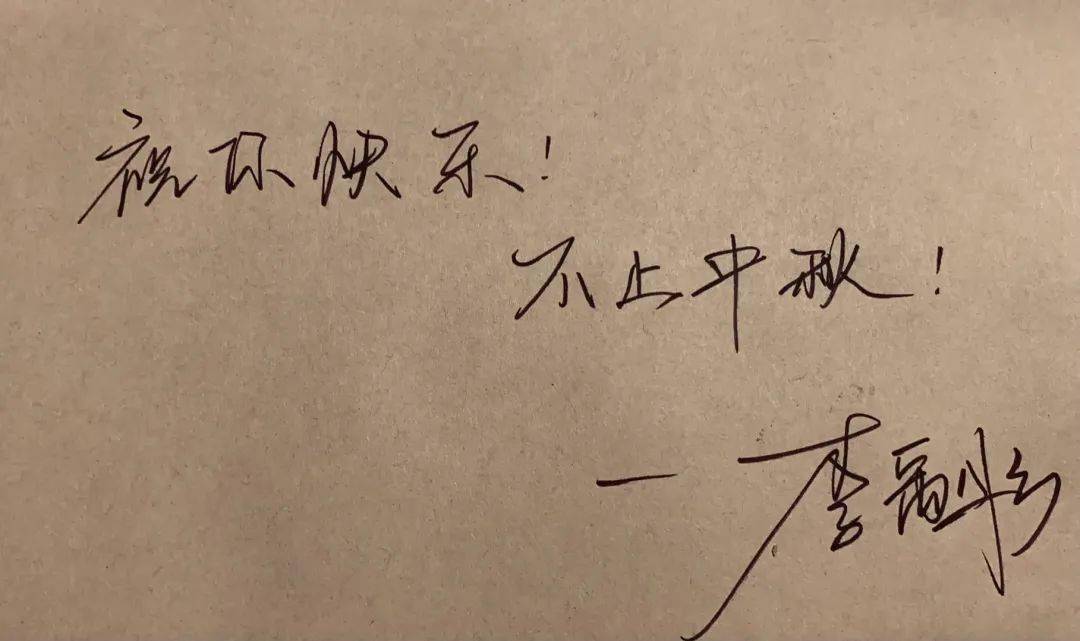 祝你快乐!
不止中秋!
— 李